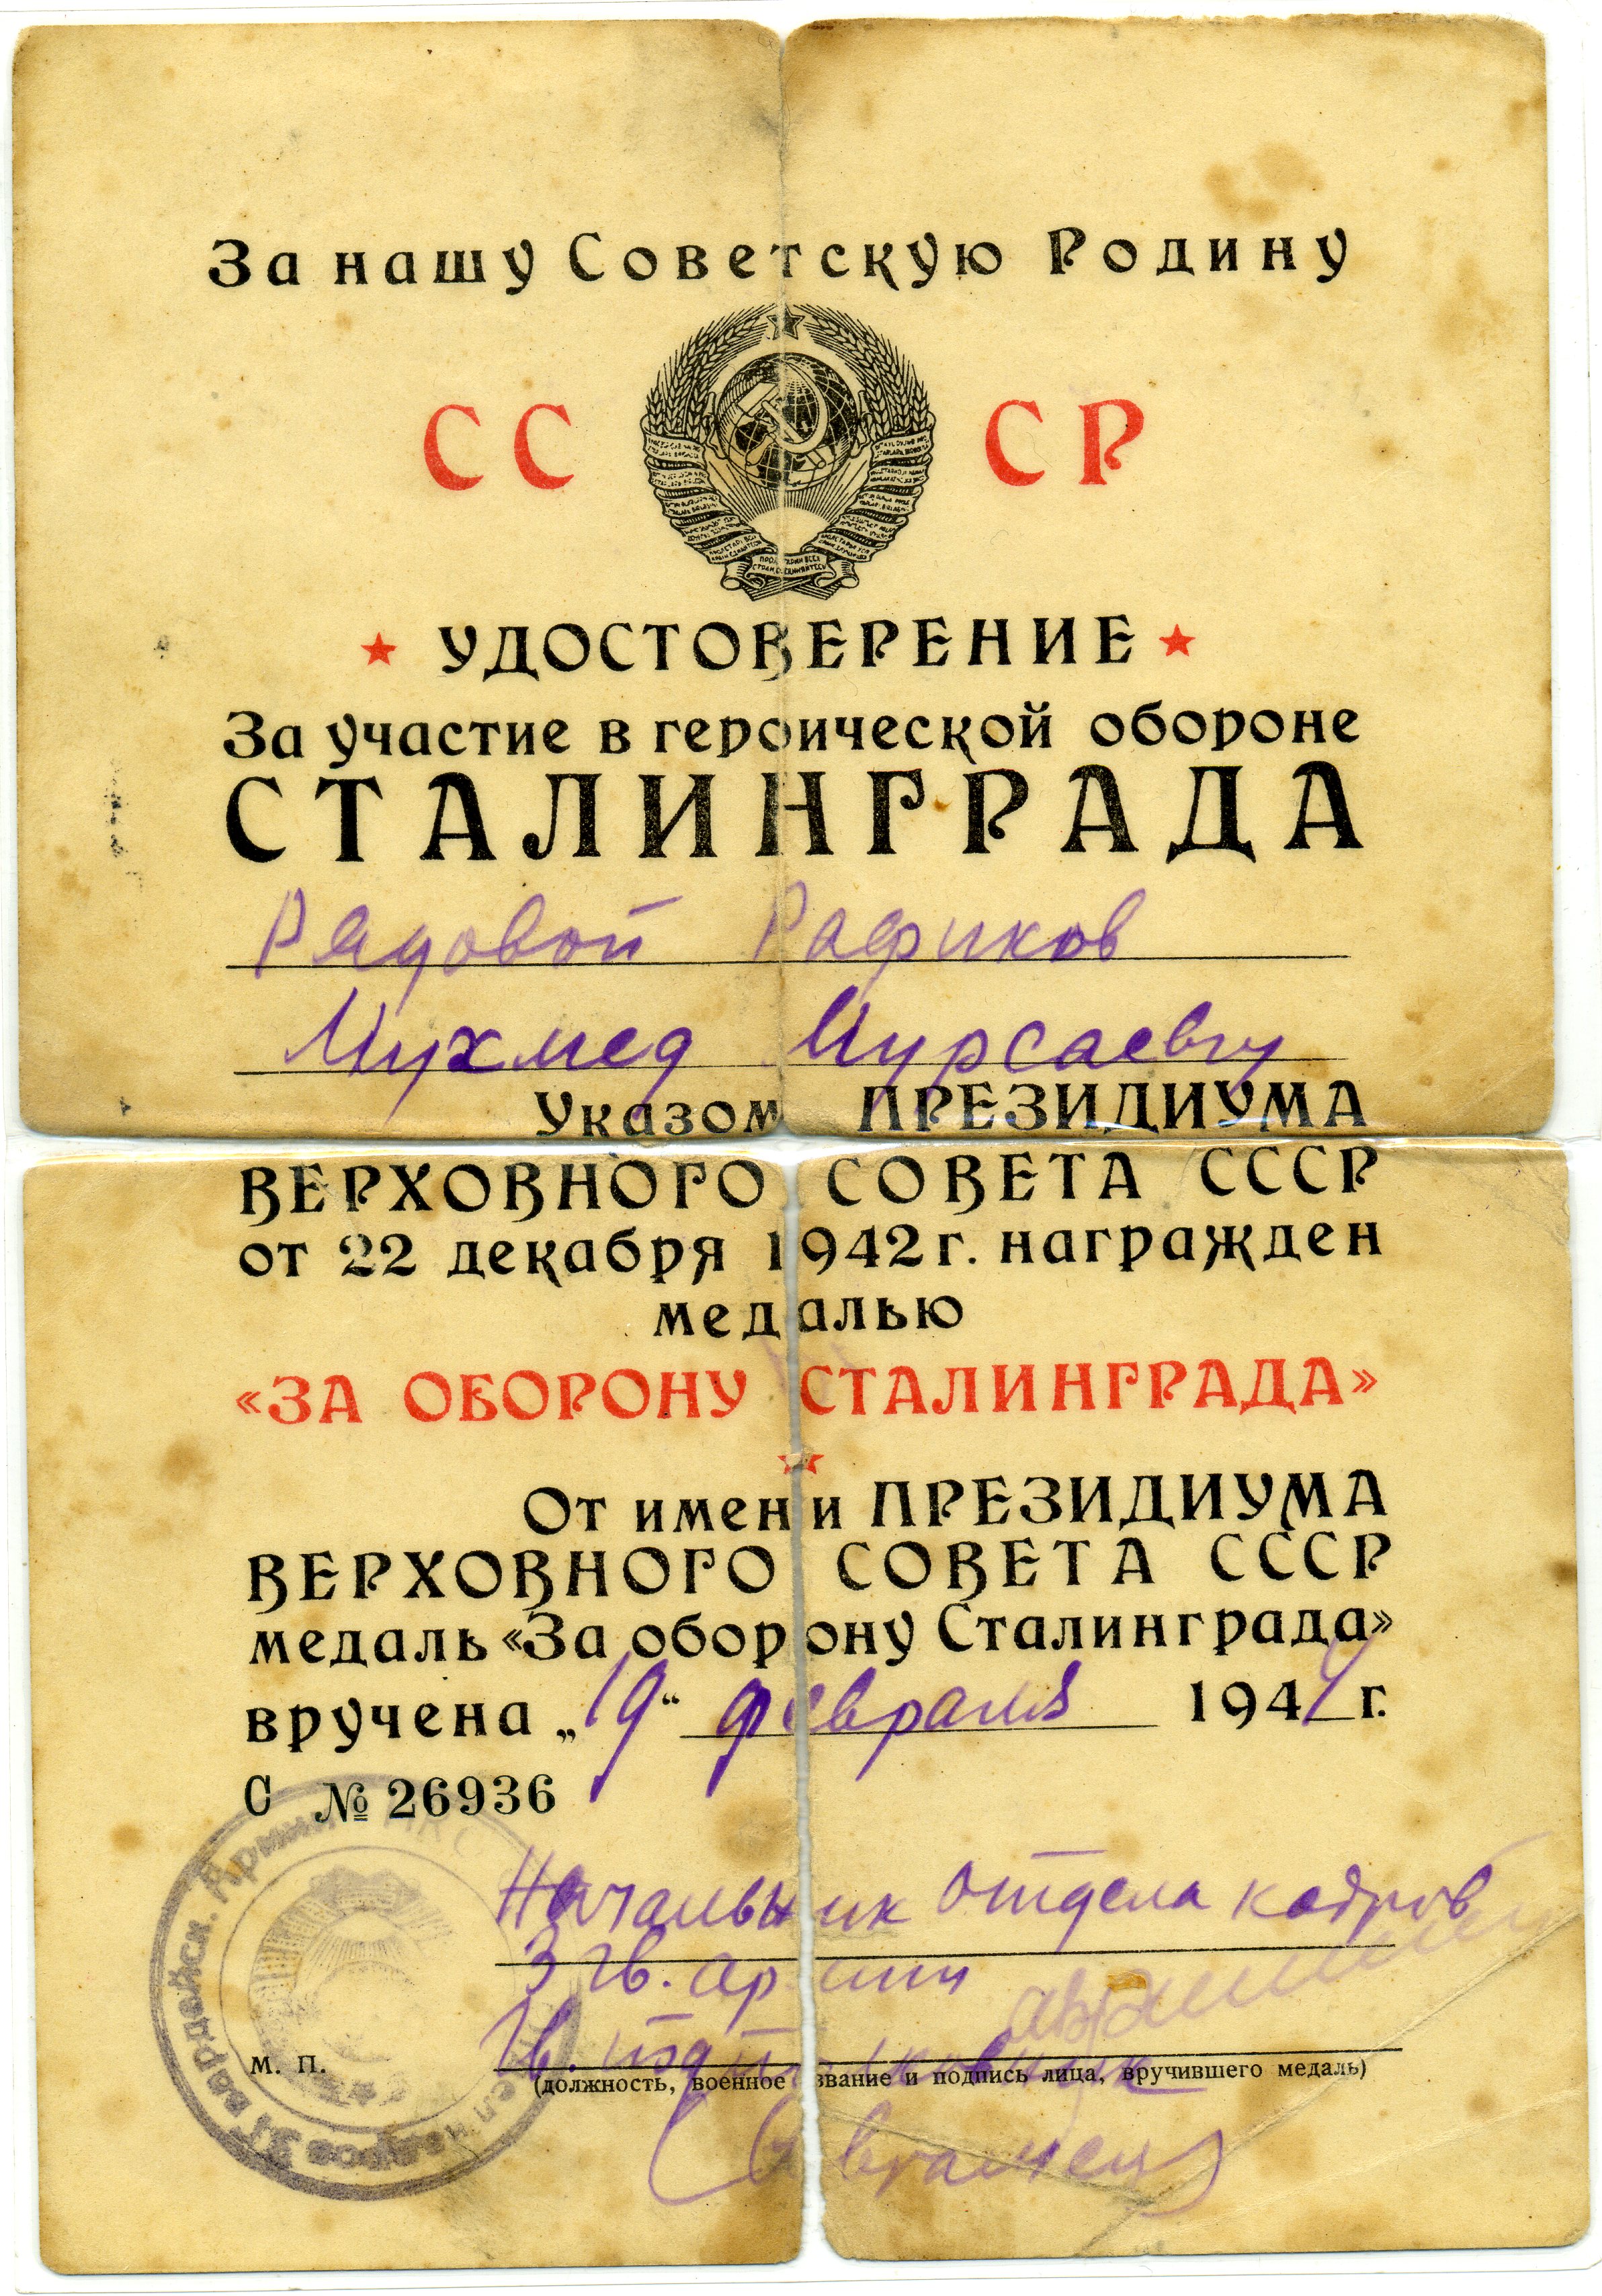 За нашу Советскую Родину
СС СР
ПРОЛЕТАРИИ ВСЕХ
СТРАН, СОЕДИНЯЙТЕСЬ
УДОСТОВЕРЕНИЕ
За участие в героической обороне
СТАЛИНГРАДА
Рядовой Рафиков
Мухмед Мурсаевич
Указом ПРЕЗИДИУМА
ВЕРХОВНОГО СОВЕТА СССР
от 22 декабря 1942 г. награжден
медалью
«ЗА ОБОРОНУ СТАЛИНГРАДА»
От имени ПРЕЗИДИУМА
ВЕРХОВНОГО СОВЕТА СССР
медаль «За оборону Сталинграда»
вручена „19“ февраля 1944 г.
С № 26936
Начальник отдела кадров
3 гв. армии
Гв. подполковник
М. П.
(должность, военное звание и подпись лица, вручившего медаль)